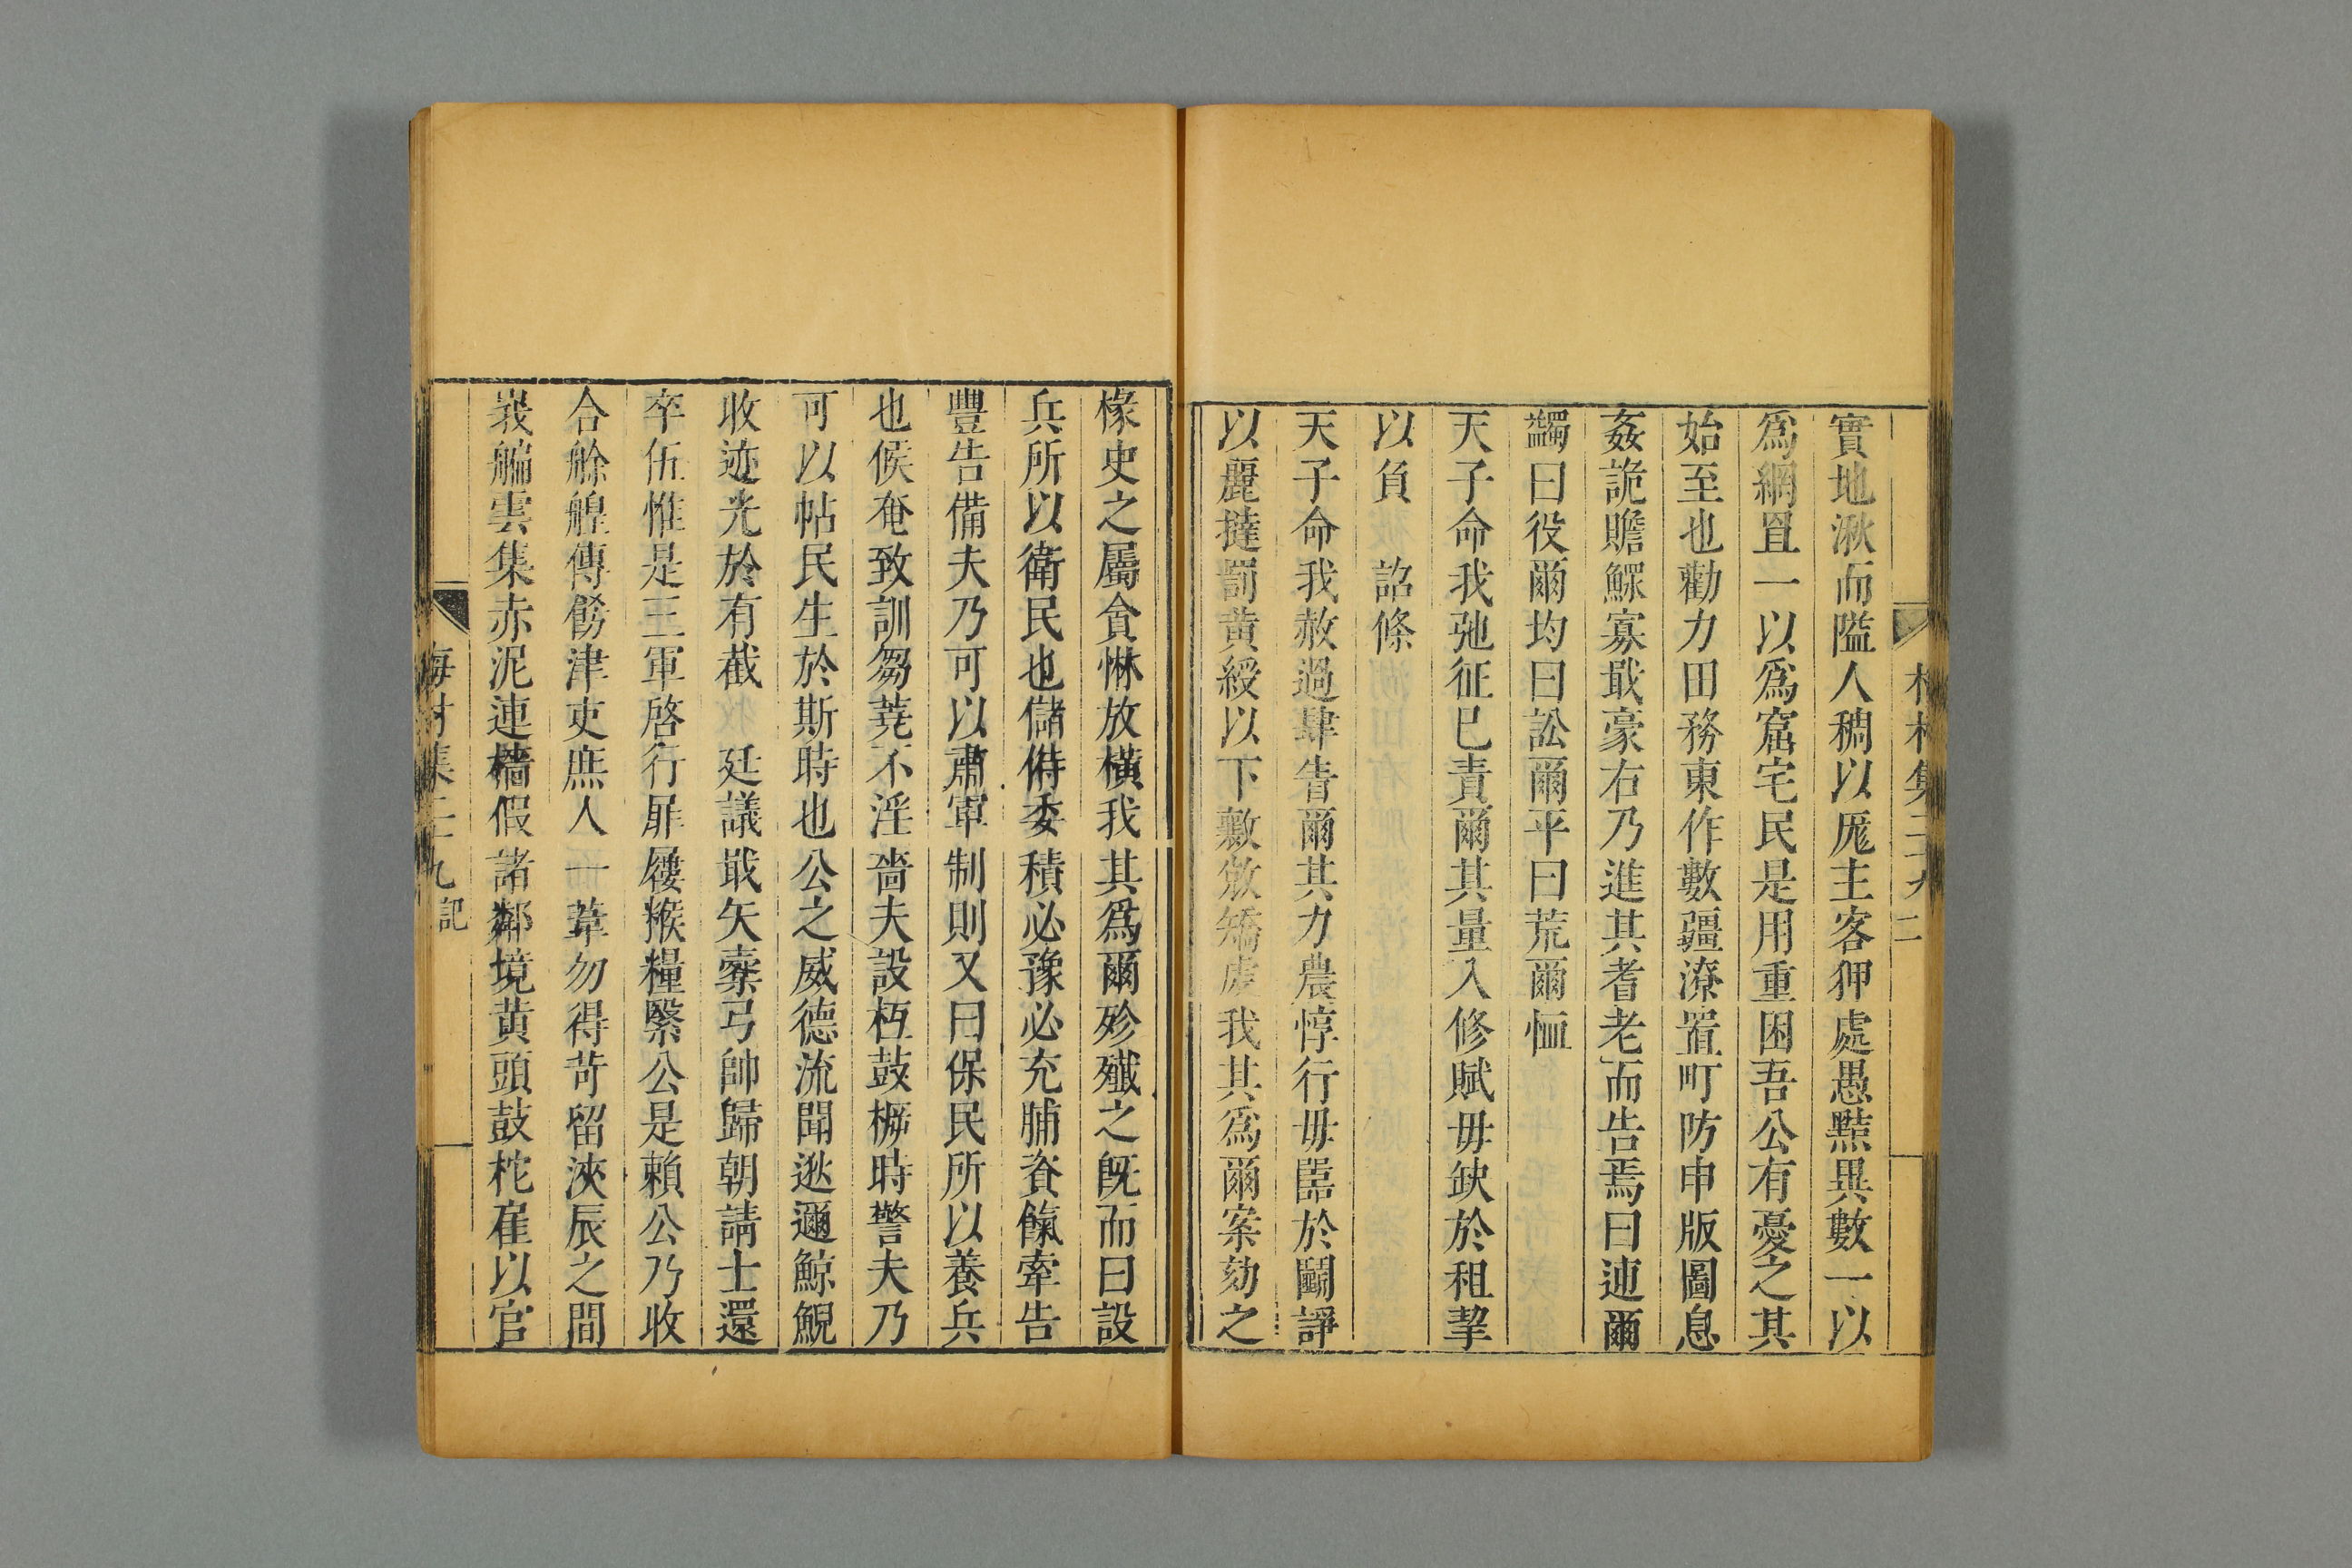 實地湫而隘人稠以厖主客狎處愚黠異數一以
爲網罝一以爲窟宅民是用重困吾公有憂之其
始至也勸力田務東作數疆潦置町防申版圖息
姦詭贍鰥寡戢豪右乃進其耆老而告焉曰迪爾
蠲曰役爾均曰訟爾平曰荒爾恤
天子命我弛征已責爾其量入修賦毋缺於租挈
以負 詔條
天子命我赦過肆眚爾其力農惇行毋嚚於鬬諍
以麗撻罰黄綬以下斁敓矯虔我其爲爾案劾之
椽史之屬貪惏放橫我其爲爾殄殱之旣而曰設
兵所以衛民也儲偫委積必豫必充脯資餼牽告
豐告備夫乃可以肅軍制則又曰保民所以養兵
也候奄致訓芻蕘不淫嗇夫設枑鼓㮄時警夫乃
可以帖民生於斯時也公之威德流聞逖邇鯨鯢
收迹光於有截 廷議戢矢櫜弓帥歸朝請士還
卒伍惟是王軍啓行扉屨餱糧緊公是賴公乃收
合艅艎傳餝津吏庶人一葦勿得苛留浹辰之間
峩艑雲集赤泥連檣假諸鄰境黄頭鼓柁雇以官
海村集二九 記
村集二九 二